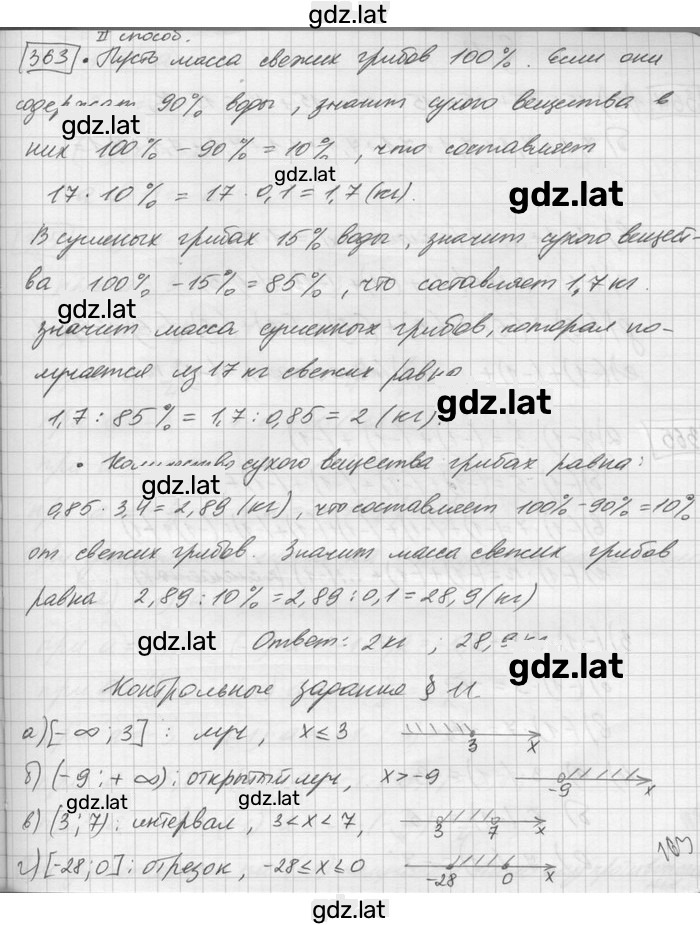 gdz.lat
II способ.
363 • Пусть масса свежих грибов 100%. Если они
содержат 90% воды, значит сухого вещества в
gdz.lat
них 100% - 90% = 10%, что составляет
gdz.lat
17 · 10% = 17 · 0,1 = 1,7 (кг).
gdz.lat
В сушеных грибах 15% воды, значит сухого вещест-
ва 100% - 15% = 85%, что составляет 1,7 кг.
gdz.lat
значит масса сушенных грибов, которая по-
лучается из 17 кг свежих равно
gdz.lat
1,7 : 85% = 1,7 : 0,85 = 2 (кг).
• Количество сухого вещества грибах равна:
gdz.lat
0,85 · 3,4 = 2,89 (кг), что составляет 100% - 90% = 10%
от свежих грибов. Значит масса свежих грибов
равна 2,89 : 10% = 2,89 : 0,1 = 28,9 (кг)
gdz.lat
Ответ: 2 кг ; 28,9 кг
gdz.lat
Контрольные задание § 11
а) [- ∞ ; 3] : луч, x ≤ 3 3 x
б) (- 9 ; + ∞) : открытый луч, x > -9 -9 x
gdz.lat gdz.lat
в) (3 ; 7) : интервал, 3 < x < 7, 3 7 x
г) [-28 ; 0] : отрезок, -28 ≤ x ≤ 0 -28 0 x
103
gdz.lat